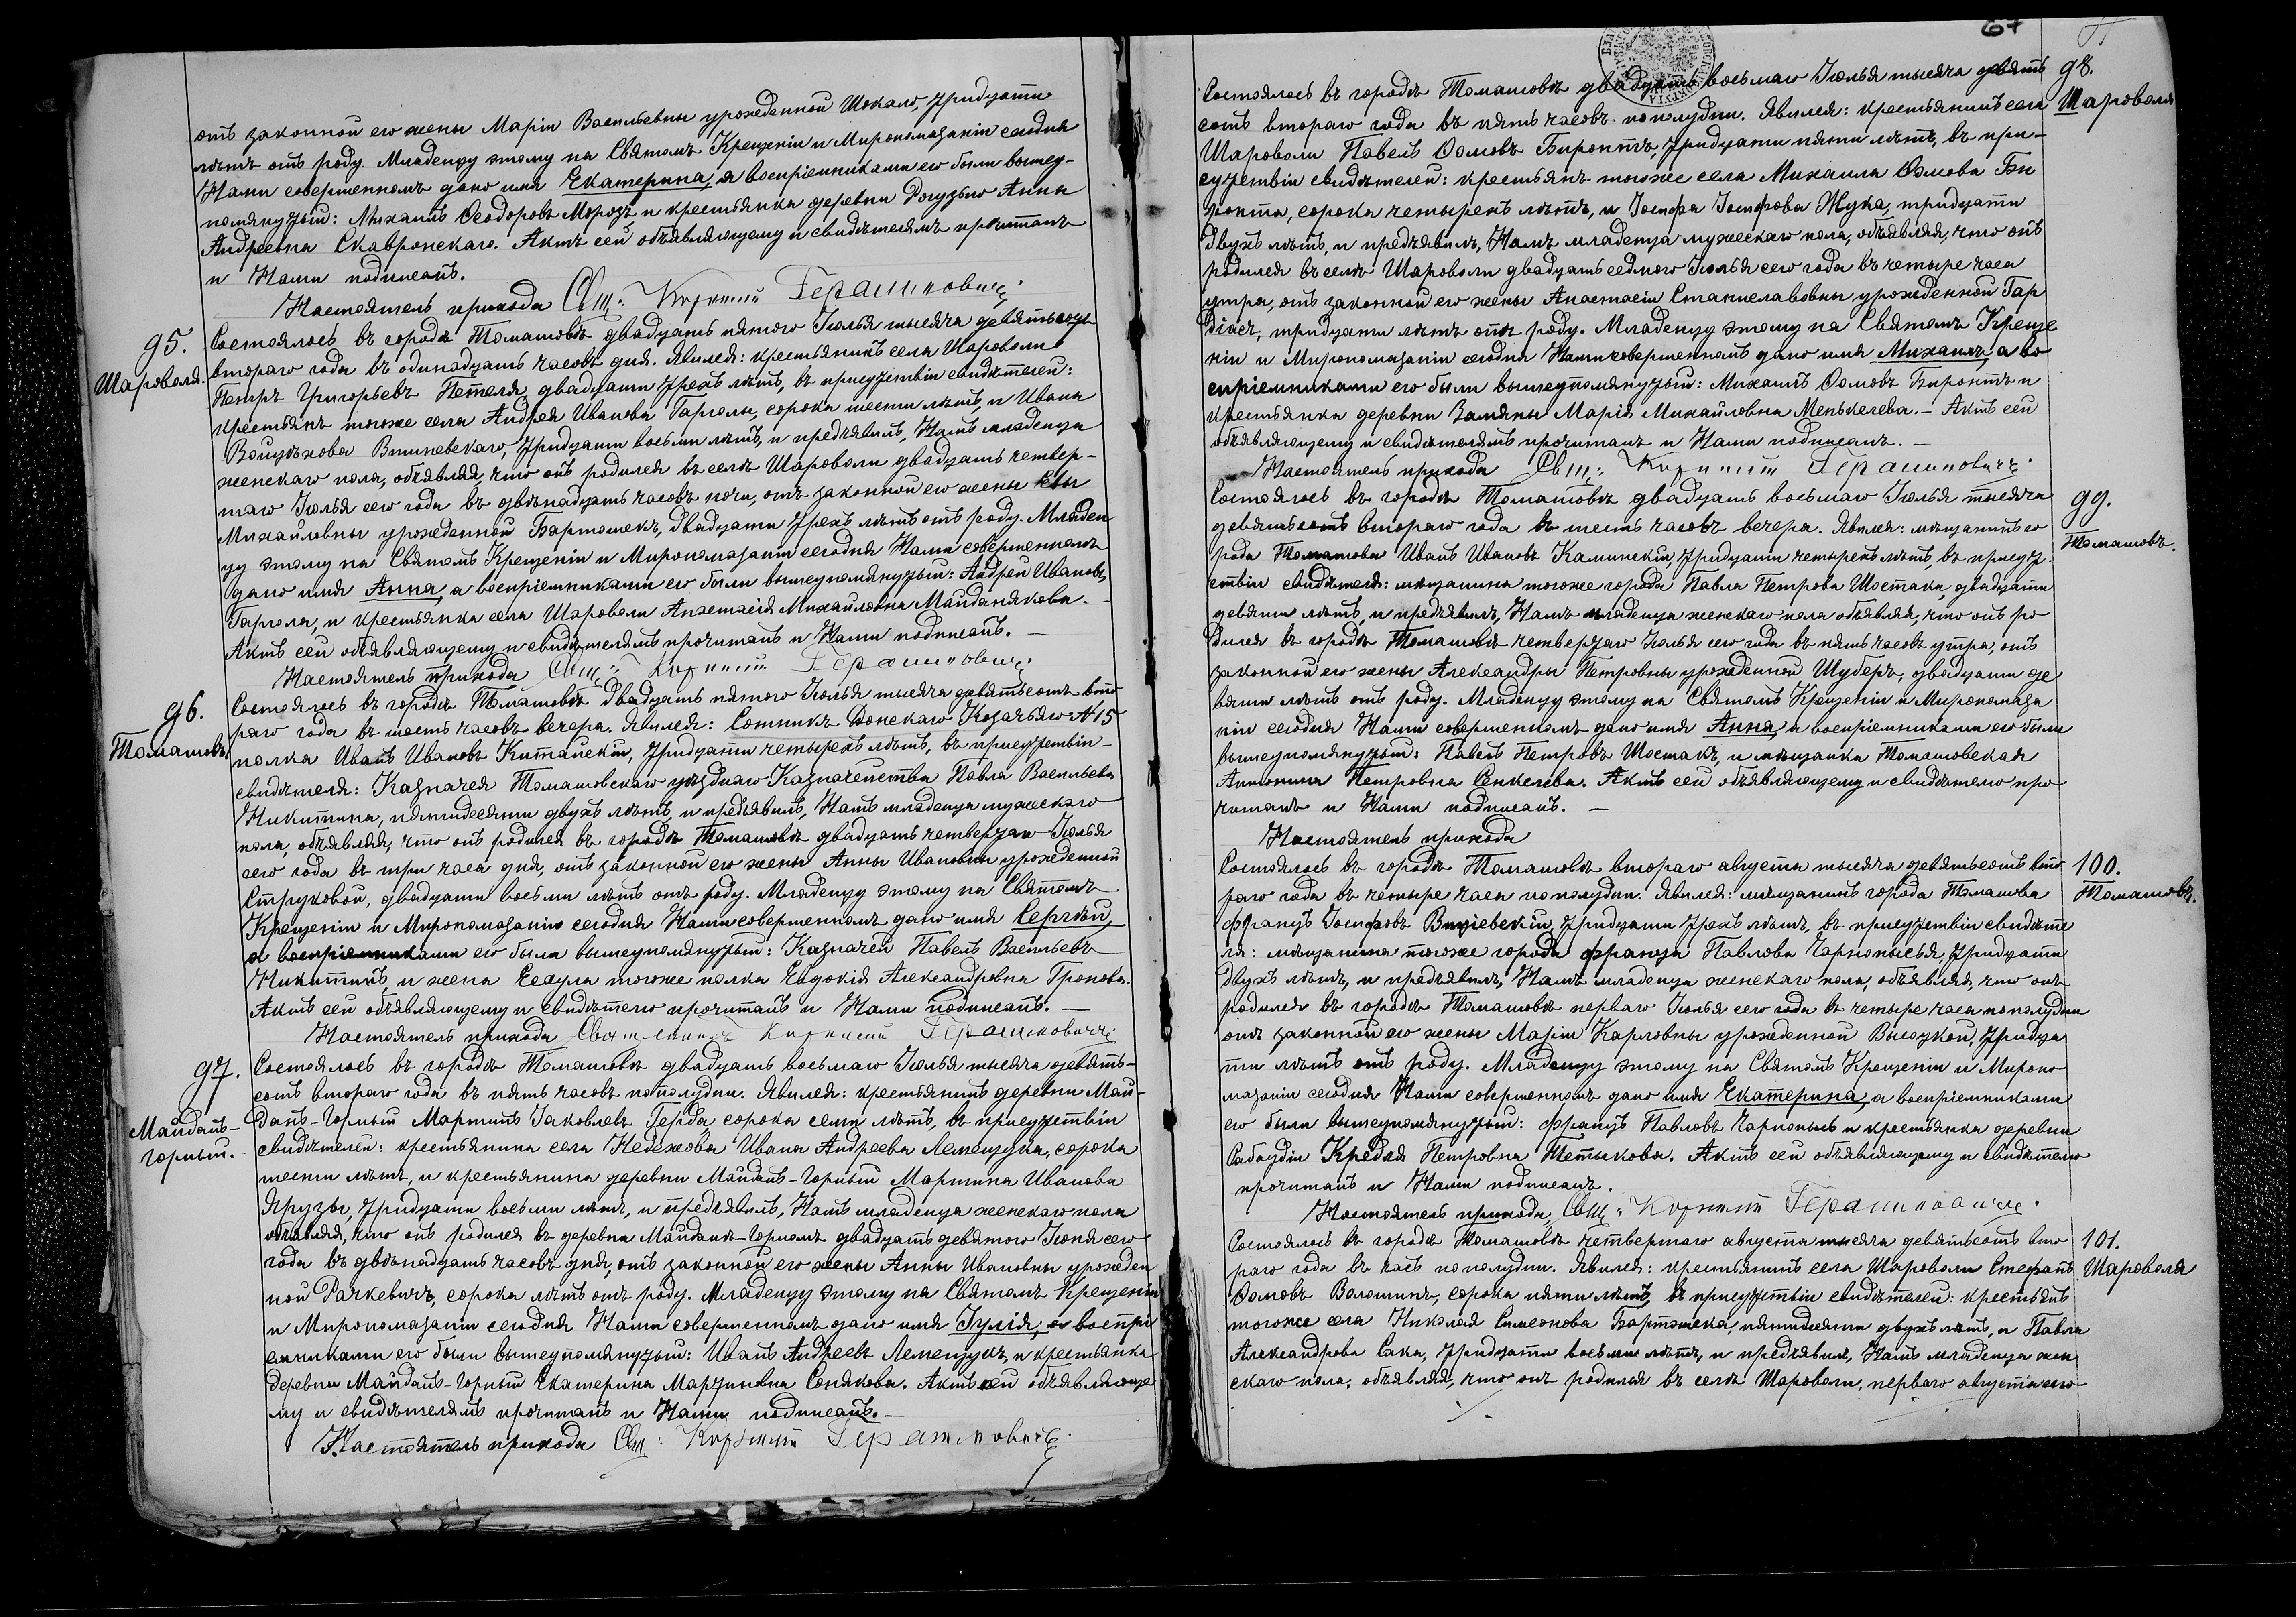 отъ законной его жены Маріи Васильевны урожденной Шокало, тридцати
лѣтъ отъ роду. Младенцу этому на Святомъ Крещеніи и Миропомазаніи сегодня
Нами совершенномъ дано имя Екатерина, а воспріемниками его были вышеу-
помянутый: Михаилъ Ѳеодоровъ Морозъ и крестьянка деревни Рогузьно Анна
Андреевна Скавронскаго. Актъ сей объявляющему и свидѣтелямъ прочитанъ
и Нами подписанъ.
Настоятель прихода Свщ: Герашковичъ.
95.
Шароволя.
Состоялось въ городѣ Томашовѣ двадцать пятого Іюлья тысяча девятьсотъ
втораго года въ одинадцать часовъ дня. Явился: крестьянинъ села Шароволи
Петръ Григорьевъ Петеля, двадцати трехъ лѣтъ, въ присутствіи свидѣтелей:
крестьянъ тогоже села Андрея Иванова Гарголы, сорока шести лѣтъ, и Ивана
Войцѣхова Вишневскаго, тридцати восьми лѣтъ, и предъявилъ, Намъ младенца
женскаго пола, объявляя, что онъ родился въ селѣ Шароволи двадцать четвер-
таго Іюлья сего года въ двѣнадцать часовъ ночи, отъ законной его жены Евы
Михайловны урожденной Бартошекъ, двадцати трехъ лѣтъ отъ роду. Младен
цу этому на Святомъ Крещеніи и Миропомазаніи сегодня Нами совершенномъ
дано имя Анна, а воспріемниками его были вышеупомянутый: Андрей Ивановъ,
Гаргола, и крестьянка села Шароволи Анастасія Михайловна Майданякова.
Актъ сей объявляющему и свидѣтелямъ прочитанъ и Нами подписанъ. —
Настоятель прихода Свщ: Герашковичъ.
96.
Томашовъ
Состоялось въ городѣ Томашовѣ двадцать пятого Іюлья тысяча девятьсотъ вто
раго года въ шесть часовъ вечера. Явился: Сотникъ Донскаго Козачьяго № 15
полка Иванъ Ивановъ Китайскій, тридцати четырехъ лѣтъ, въ присутствіи
свидѣтеля: Казначея Томашовскаго уѣзднаго Казначейства Павла Васильева
Никитина, пятидесяти двухъ лѣтъ, и предъявилъ, Намъ младенца мужескаго
пола, объявляя, что онъ родился въ городѣ Томашовѣ двадцать четвертаго Іюлья
сего года въ три часа дня, отъ законной его жены Анны Ивановны урожденной
Струковой, двадцати восьми лѣтъ отъ роду. Младенцу этому на Святомъ
Крещеніи и Миропомазаніи сегодня Нами совершенномъ дано имя Сергѣй,
а воспріемниками его были вышеупомянутый: Казначей Павелъ Васильевъ
Никитинъ, и жена Есаула тогоже полка Евдокія Александровна Громова.
Актъ сей объявляющему и свидѣтелю прочитанъ и Нами подписанъ. —
Настоятель прихода Священникъ Герашковичъ.
97.
Майданъ-
горный.
Состоялось въ городѣ Томашовѣ двадцать восьмаго Іюлья тысяча девять-
сотъ втораго года въ пять часовъ пополудни. Явился: крестьянинъ деревни Май-
данъ-Горный Мартинъ Іаковлевъ Герда, сорока семи лѣтъ, въ присутствіи
свидѣтелей: крестьянина села Кедежова Ивана Андреева Лемещука, сорока
шести лѣтъ, и крестьянина деревни Майданъ-Горный Мартина Иванова
Ярузы, тридцати восьми лѣтъ, и предъявилъ, Намъ младенца женскаго пола
объявляя, что онъ родился въ деревни Майданъ-Горномъ двадцать девятого Іюня сего
года въ двѣнадцать часовъ дня, отъ законной его жены Анны Ивановны урожден
ной Рачкевичъ, сорока лѣтъ отъ роду. Младенцу этому на Святомъ Крещеніи
и Миропомазаніи сегодня Нами совершенномъ дано имя Іулія, а воспрі
емниками его были вышеупомянутый: Иванъ Андреевъ Лемещукъ, и крестьянка
деревни Майданъ-Горный Екатерина Мартиновна Сонякова. Актъ сей объявляюще
му и свидѣтелямъ прочитанъ и Нами подписанъ. —
Настоятель прихода Свщ: Герашковичъ.
67
98.
Шароволя
Состоялось въ городѣ Томашовѣ двадцать восьмаго Іюлья тысяча девять
сотъ втораго года въ пять часовъ пополудни. Явился: крестьянинъ села
Шароволи Павелъ Ѳомовъ Биронтъ, тридцати пяти лѣтъ, въ при-
сутствіи свидѣтелей: крестьянъ тогоже села Михаила Ѳомова Би
ронта, сорока четырехъ лѣтъ, и Іосифа Іосифова Жука, тридцати
двухъ лѣтъ, и предъявилъ, Намъ младенца мужескаго пола, объявляя, что онъ
родился въ селѣ Шароволи двадцать седмого Іюлья сего года въ четыре часа
утра, отъ законной его жены Анастасіи Станиславовны урожденной Гар
діасъ, тридцати лѣтъ отъ роду. Младенцу этому на Святомъ Креще
ніи и Миропомазаніи сегодня Нами совершенномъ дано имя Михаилъ, а во
спріемниками его были вышеупомянутый: Михаилъ Ѳомовъ Биронтъ и
крестьянка деревни Замяны Марія Михайловна Менькелева. — Актъ сей
объявляющему и свидѣтелямъ прочитанъ и Нами подписанъ. —
Настоятель прихода Свщ: Герашковичъ.
99.
Томашовъ.
Состоялось въ городѣ Томашовѣ двадцать восьмаго Іюлья тысяча
девятьсотъ втораго года въ шесть часовъ вечера. Явился: мѣщанинъ го
рода Томашова Иванъ Ивановъ Каминскій, тридцати четырехъ лѣтъ, въ присут
ствіи свидѣтеля: мѣщанина тогоже города Павла Петрова Шостака, двадцати
девяти лѣтъ, и предъявилъ, Намъ младенца женскаго пола объявляя, что онъ ро
дился въ городѣ Томашовѣ четвертаго Іюлья сего года въ пять часовъ утра, отъ
законной его жены Александры Петровны урожденной Шуберъ, двадцати де
вяти лѣтъ отъ роду. Младенцу этому на Святомъ Крещеніи и Миропомаза
ніи сегодня Нами совершенномъ дано имя Анна, а воспріемниками его были
вышеупомянутый: Павелъ Петровъ Шостакъ, и мѣщанка Томашовская
Антонина Петровна Сенкелева. Актъ сей объявляющему и свидѣтелю про
читанъ и Нами подписанъ. —
Настоятель прихода
100.
Томашовъ.
Состоялось въ городѣ Томашовѣ втораго августа тысяча девятьсотъ вто
раго года въ четыре часа пополудни. Явился: мѣщанинъ города Томашова
Францъ Іосифовъ тридцати трехъ лѣтъ, въ присутствіи свидѣте
ля: мѣщанина тогоже города Франца Павлова Чарнописья, тридцати
двухъ лѣтъ, и предъявилъ, Намъ младенца женскаго пола, объявляя, что онъ
родился въ городѣ Томашовѣ перваго Іюлья сего года въ четыре часа пополудни
отъ законной его жены Маріи Карловны урожденной Высоцкой, тридца
ти лѣтъ отъ роду. Младенцу этому на Святомъ Крещеніи и Миропо
мазаніи сегодня Нами совершенномъ дано имя Екатерина, а воспріемниками
его были вышеупомянутый: Францъ Павловъ Чарнописъ и крестьянка деревни
Сабаудіи Петровна Петыкова. Актъ сей объявляющему и свидѣтелю
прочитанъ и Нами подписанъ.
Настоятель прихода, Свщ: Герашковичъ.
101.
Шароволя
Состоялось въ городѣ Томашовѣ четвертаго августа тысяча девятьсотъ вто
раго года въ часъ пополудни. Явился: крестьянинъ села Шароволи Стефанъ
Ѳомовъ Волошинъ, сорока пяти лѣтъ, въ присутствіи свидѣтелей: крестьянъ
тогоже села Николая Симеонова Бартошека, пятидесяти двухъ лѣтъ, и Павла
Александрова Сака, тридцати восьми лѣтъ, и предъявилъ, Намъ младенца жен
скаго пола, объявляя, что онъ родился въ селѣ Шароволи, перваго августа сего